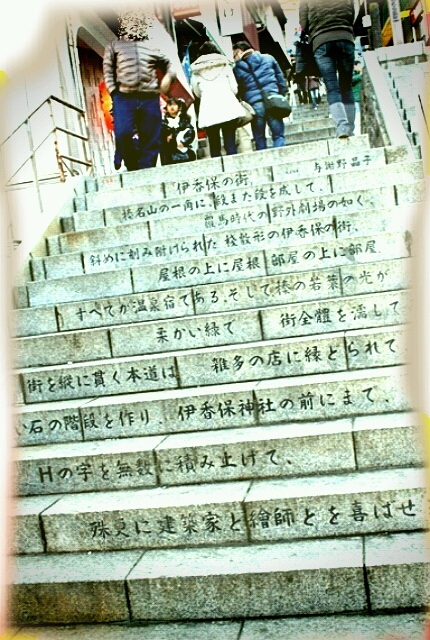 伊香保の街、 与謝野晶子
榛名山の一角に、段また段を成して、
羅馬時代の野外劇場の如く、
斜めに刻み附けられた 桟敷形の伊香保の街、
屋根の上に屋根、部屋の上に部屋、
すべてが温泉宿である。そして榛の若葉の光が
柔かい緑で 街全體を濡して
街を縦に貫く本道は 雑多の店に縁どられて
い石の階段を作り、伊香保神社の前にまで、
Hの字を無数に積み上げて、
殊更に建築家と繪師とを喜ばせ